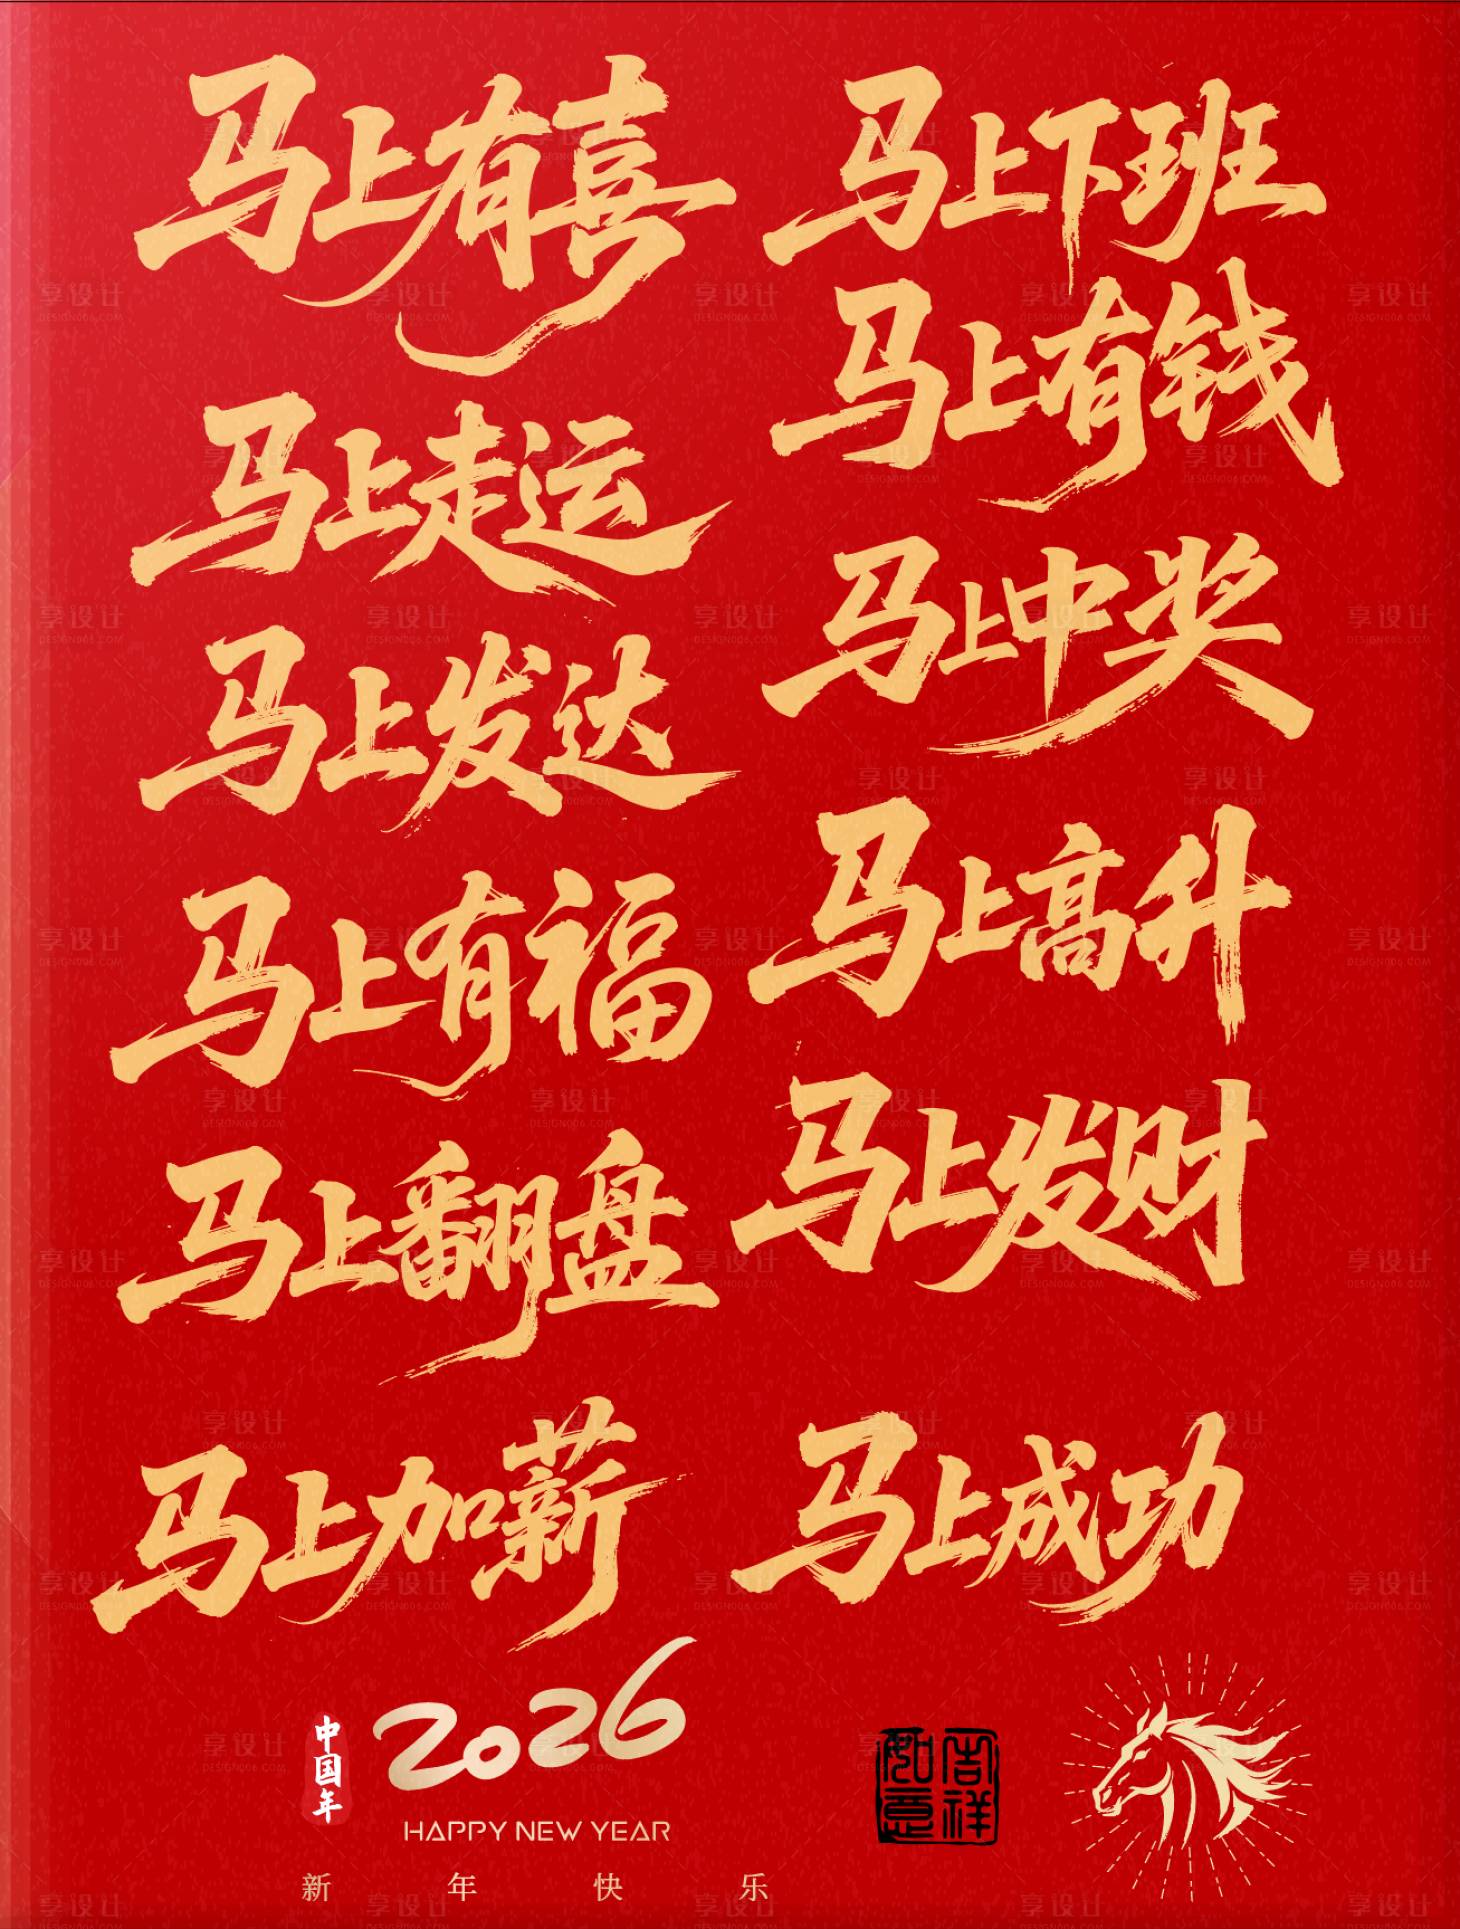 马上有喜
马上走运
马上发达
马上有福
马上翻盘
马上加薪
马上下班
马上有钱
马上中奖
马上高升
马上发财
马上成功
中国年
2026
HAPPY NEW YEAR
新年快乐
吉祥如意
享设计
DESIGN006.COM